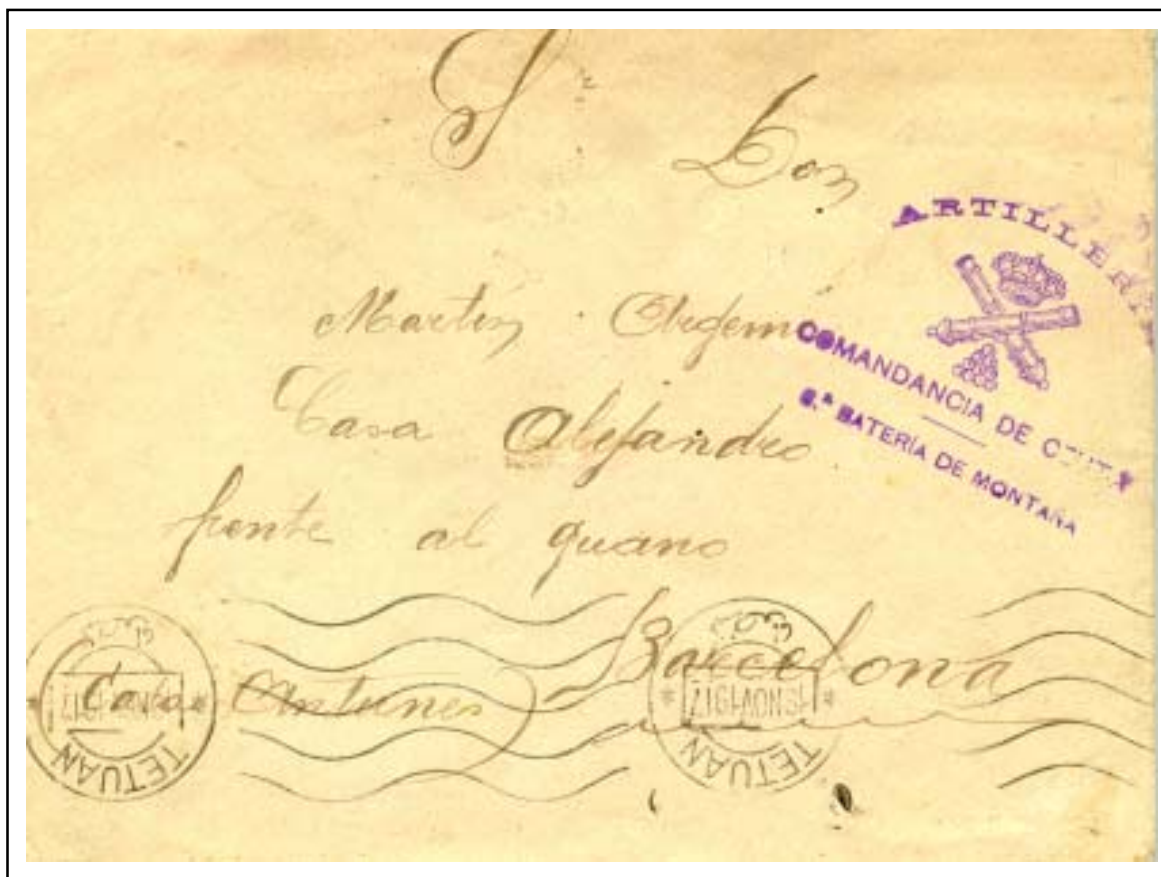 Sr Don
Martín Argemí
Casa Alejandro
frente al guano
Barcelona
Casa Antunes
ARTILLERÍA
COMANDANCIA DE CEUTA
6.ª BATERÍA DE MONTAÑA
TETUAN
TETUAN